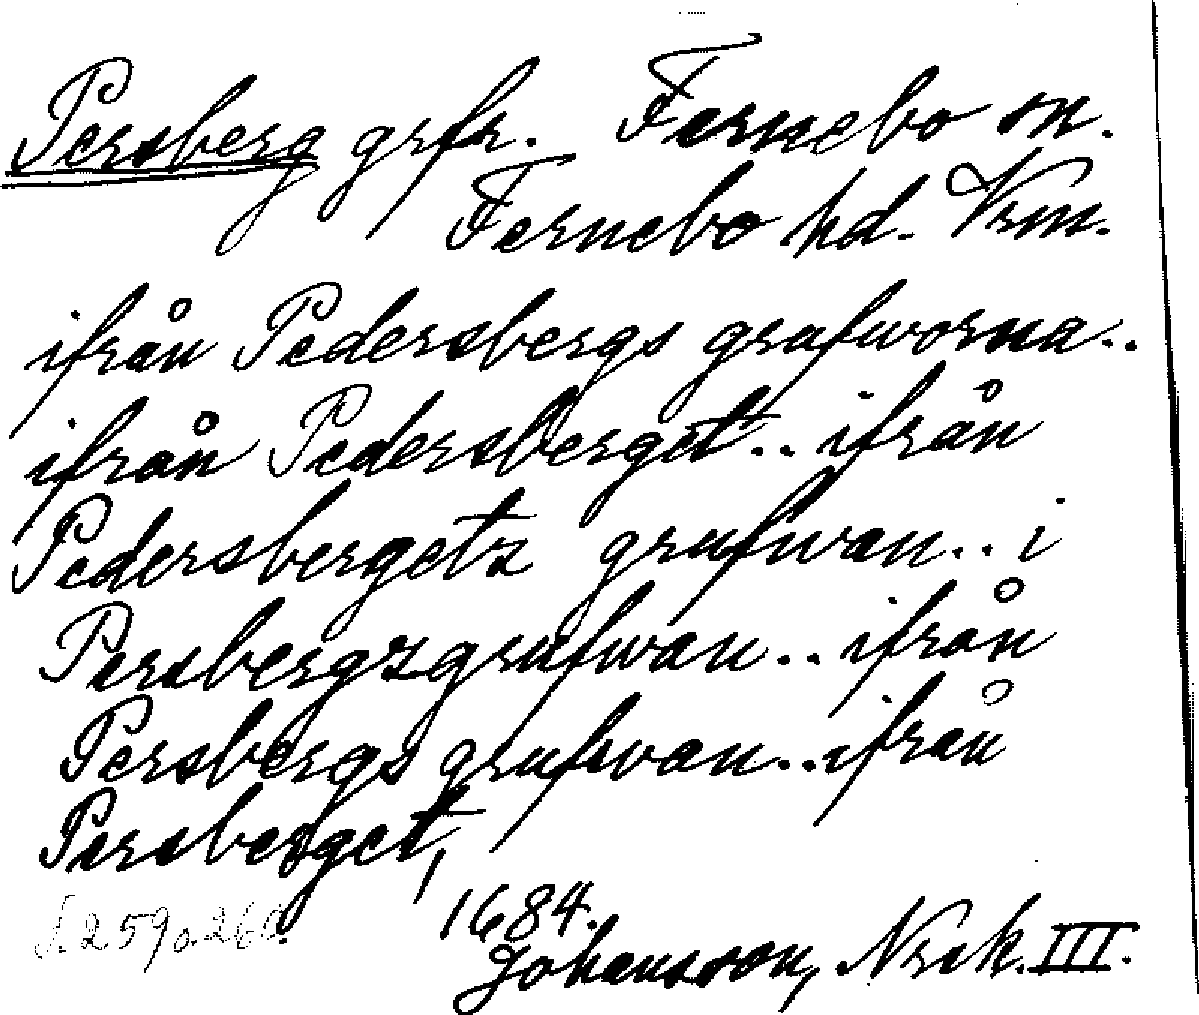 Persberg grfr. Fernebo sn.
Fernebo hd. Vrm.
ifrån Pedersbergs grafworna..
ifrån Pedersberget.. ifrån
Pedersbergetz grafwan.. i
Persbergzgrafwan.. ifrån
Persbergs grafwan.. ifrån
Persberget,
1684.
s. 259 o. 260.
Johansson, Nrsk. III.